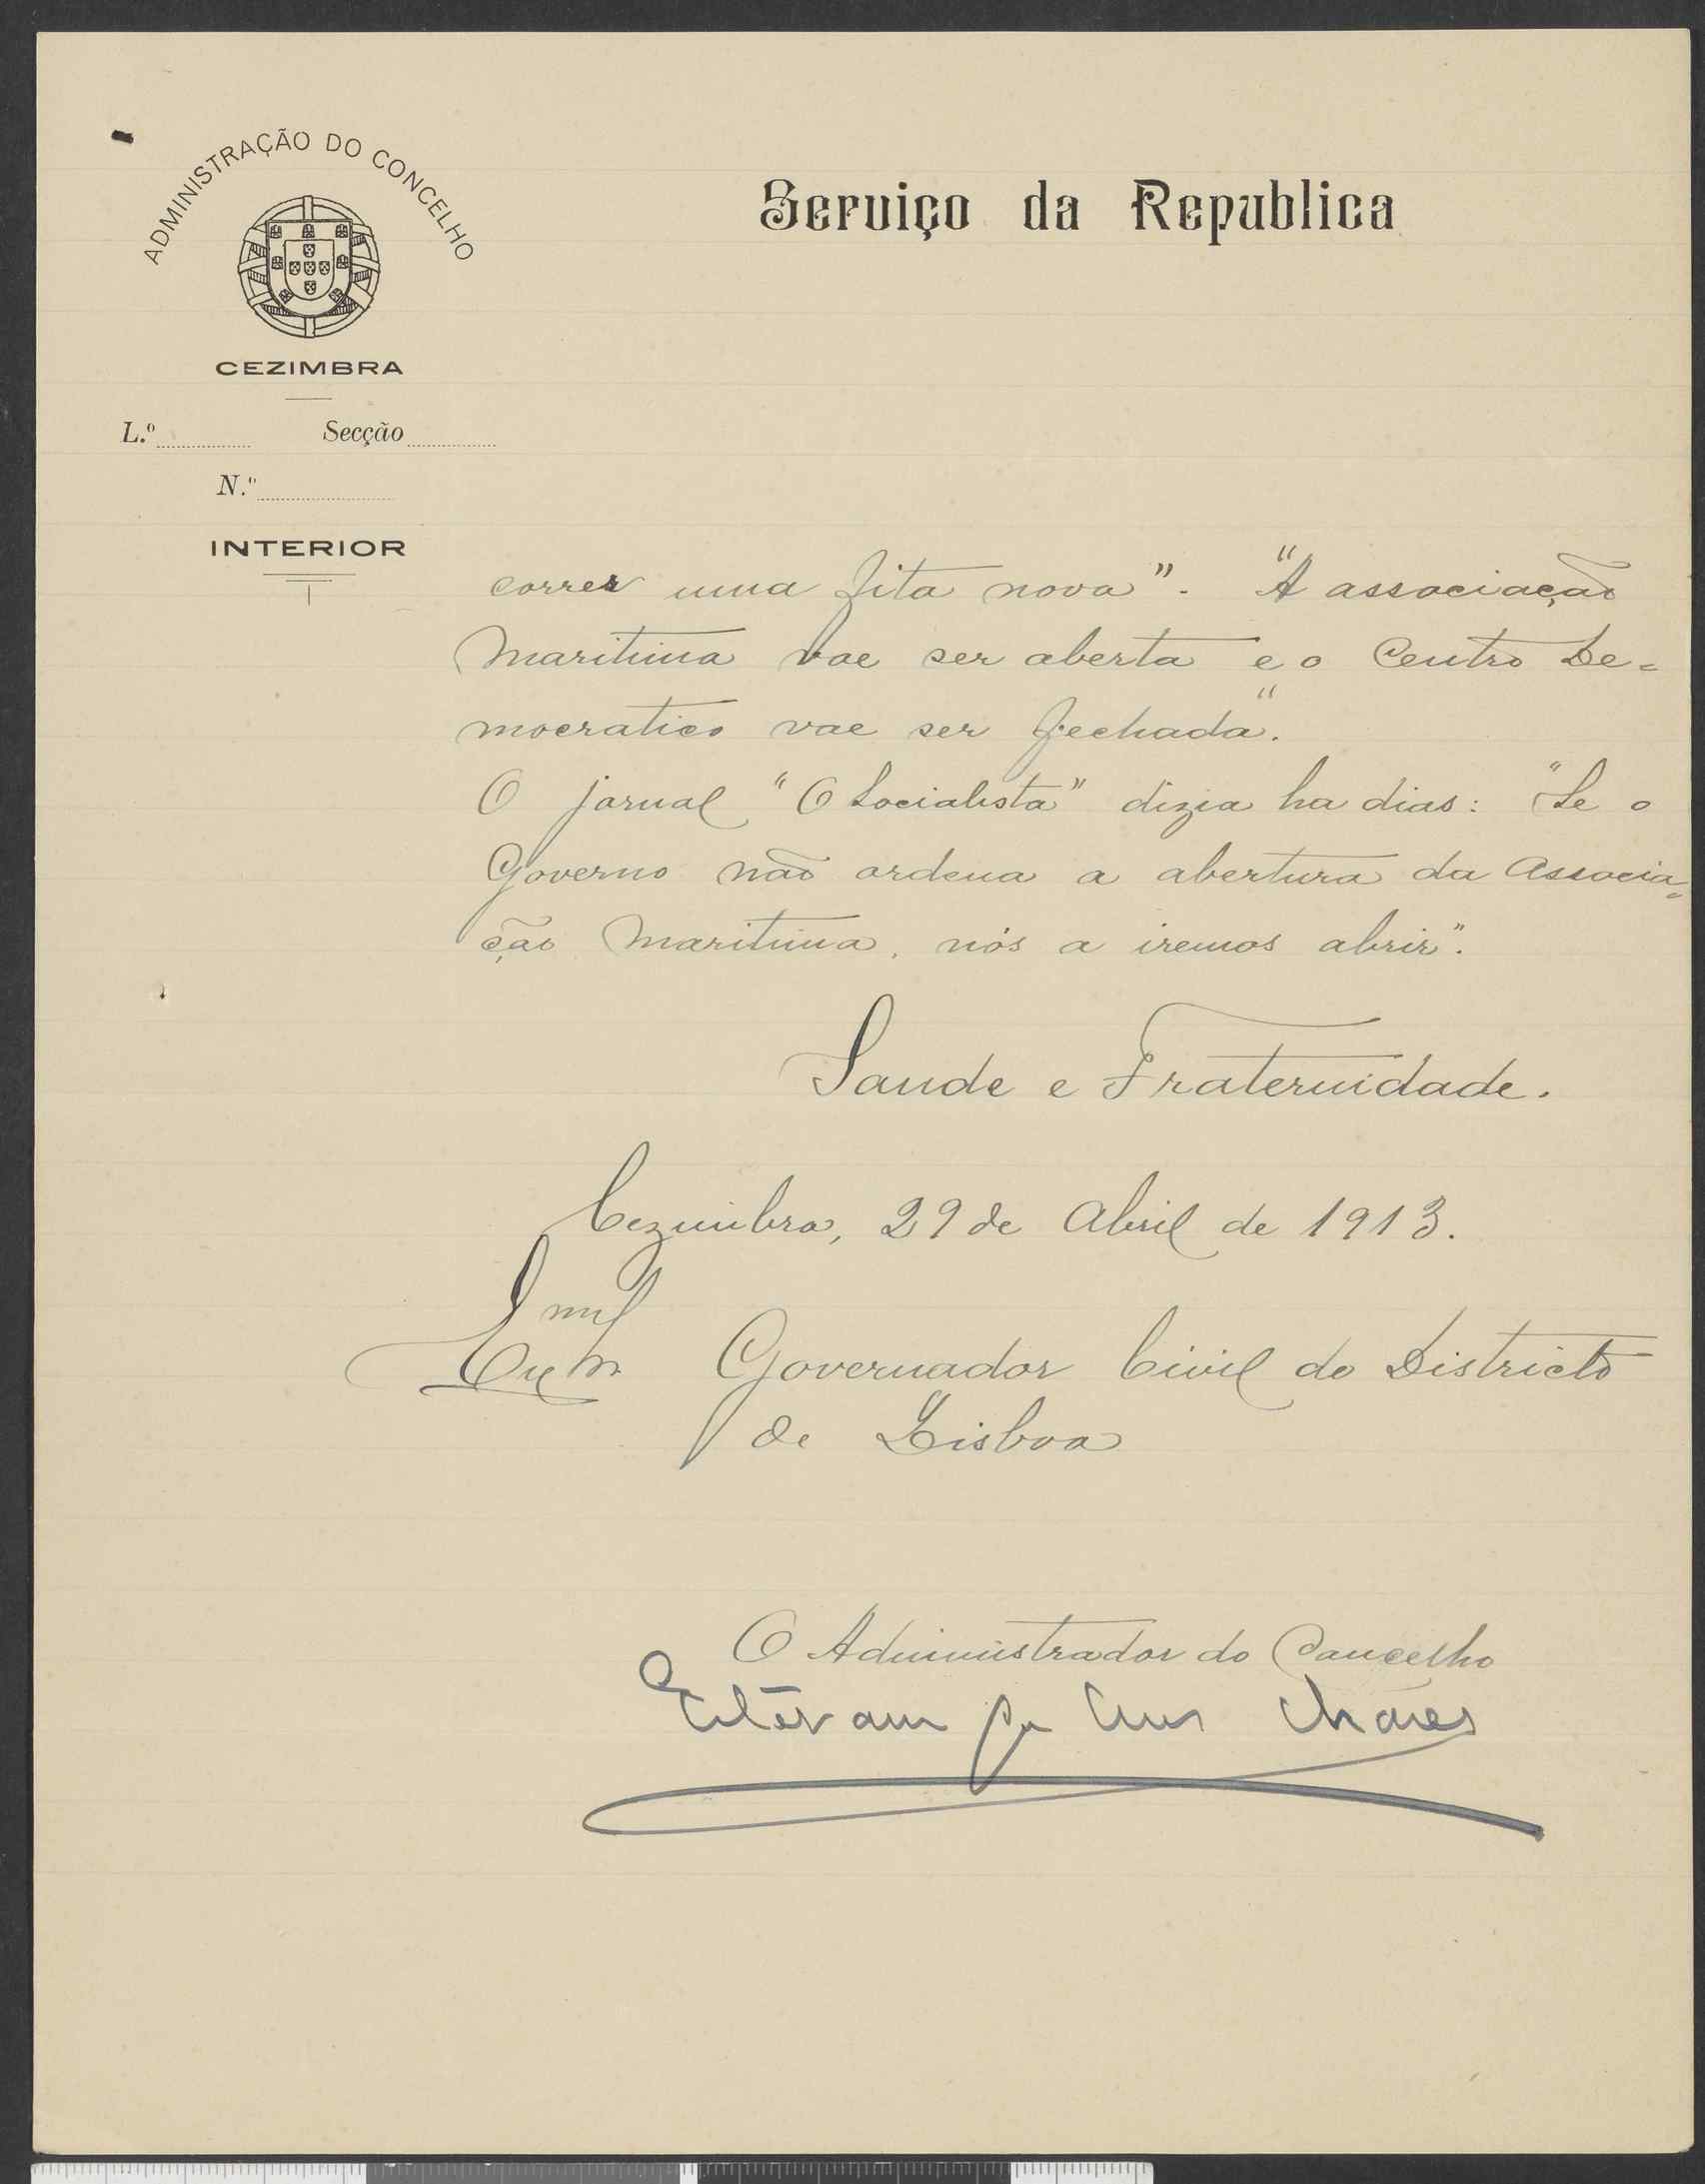 ADMINISTRAÇÃO DO CONCELHO
CEZIMBRA
Serviço da Republica
L.º Secção
N.º
INTERIOR
correr uma fita nova". "A associação
Maritima vae ser aberta e o Centro De=
mocratico vae ser fechada".
O jornal "O Socialista" dizia ha dias: "Se o
Governo não ordena a abertura da Associa=
ção Maritima, nós a iremos abrir".
Saude e Fraternidade.
Cezimbra, 29 de Abril de 1913.
Governador Civil do Districto
de Lisboa
O Administrador do Concelho